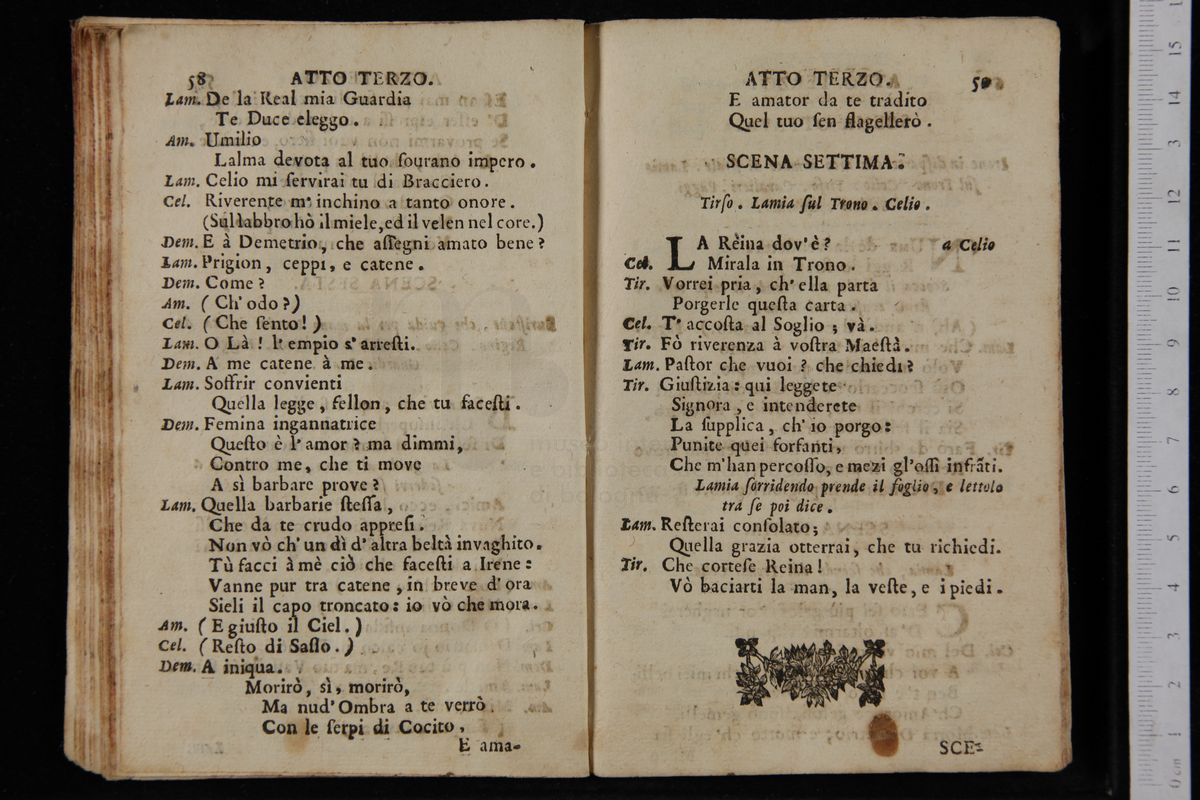 58 ATTO TERZO.
Lam. De la Real mia Guardia
Te Duce eleggo.
Am. Umilio
Lalma devota al tuo ſourano impero.
Lam. Celio mi ſervirai tu di Bracciero.
Cel. Riverente m' inchino a tanto onore.
(Sul labbro hò il miele, ed il velen nel core.)
Dem. E à Demetrio, che aſſegni amato bene?
Lam. Prigion, ceppi, e catene.
Dem. Come?
Am. (Ch' odo?)
Cel. (Che ſento!)
Lam. O Là! l' empio s' arreſti.
Dem. A me catene à me.
Lam. Soffrir convienti
Quella legge, fellon, che tu faceſti.
Dem. Femina ingannatrice
Queſto è l' amor? ma dimmi,
Contro me, che ti move
A sì barbare prove?
Lam. Quella barbarie ſteſſa,
Che da te crudo appreſi.
Non vò ch' un dì d' altra beltà invaghito.
Tù facci à mè ciò che faceſti a Irene:
Vanne pur tra catene, in breve d' ora
Sieli il capo troncato: io vò che mora.
Am. (E giuſto il Ciel.)
Cel. (Reſto di Saſſo.)
Dem. A iniqua.
Morirò, sì, morirò,
Ma nud' Ombra a te verrò.
Con le ſerpi di Cocito,
E ama-
ATTO TERZO. 59
E amator da te tradito
Quel tuo ſen flagellerò.
SCENA SETTIMA.
Tirſo. Lamia ſul Trono. Celio.
LA Rèina dov' è? a Celio
Cel. Mirala in Trono.
Tir. Vorrei pria, ch' ella parta
Porgerle queſta carta.
Cel. T' accoſta al Soglio; và.
Tir. Fò riverenza à voſtra Maeſtà.
Lam. Paſtor che vuoi? che chiedi?
Tir. Giuſtizia: qui leggete
Signora, e intenderete
La ſupplica, ch' io porgo:
Punite quei forfanti,
Che m' han percoſſo, e mezi gl' oſſi infrāti.
Lamia ſorridendo prende il foglio, e lettolo
tra ſe poi dice.
Lam. Reſterai conſolato;
Quella grazia otterrai, che tu richiedi.
Tir. Che corteſe Reina!
Vò baciarti la man, la veſte, e i piedi.
SCE-